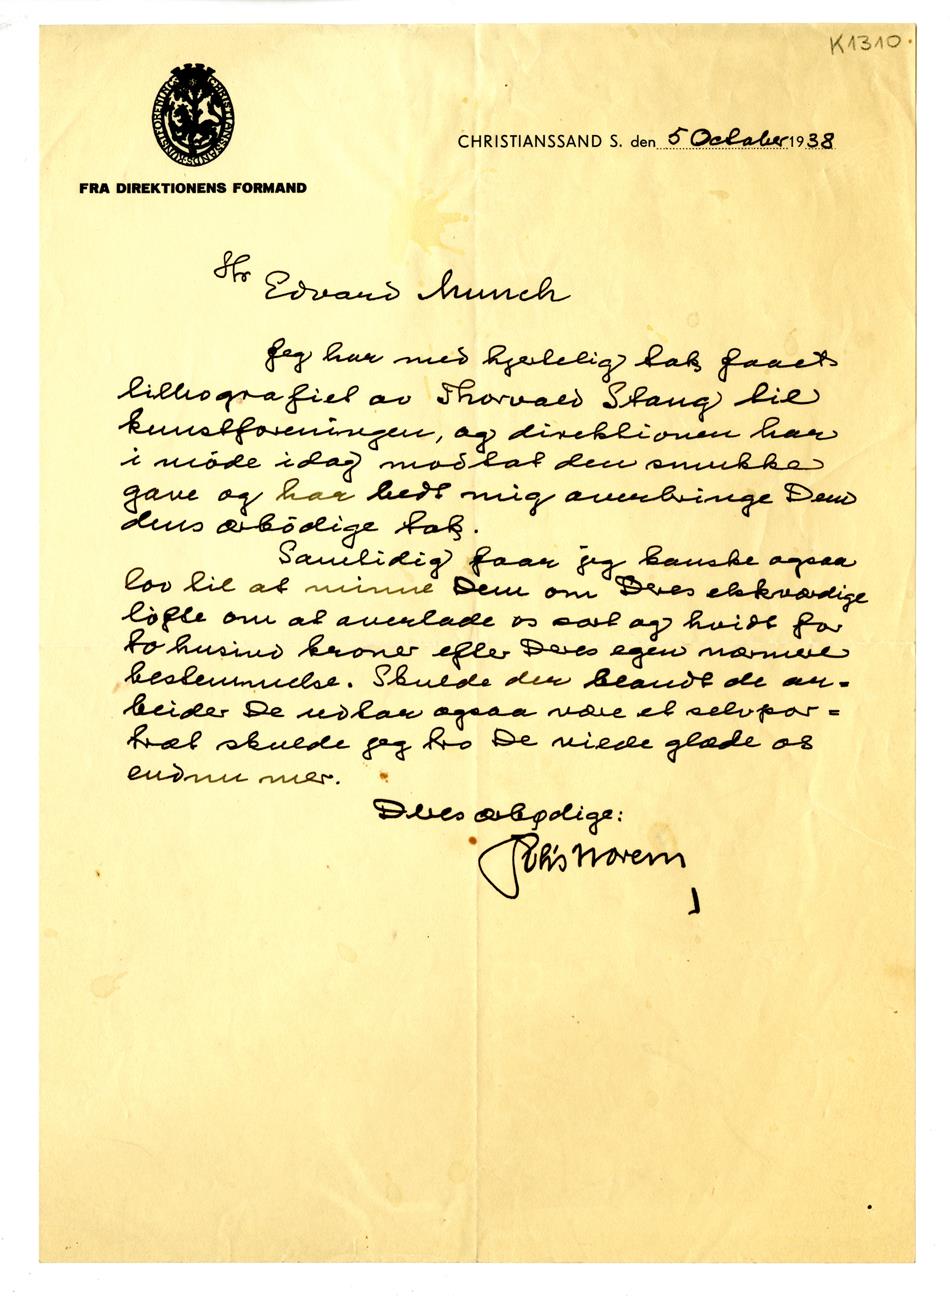 K1310.
CHRISTIANSSANDS KUNSTFORENING
CHRISTIANSSAND S. den 5 October 1938
FRA DIREKTIONENS FORMAND
Hr
Edvard Munch
Jeg har med hjertelig tak faaet
lithografiet av Thorvald Stang til
kunstforeningen, og direktionen har
i möde idag modtat den smukke
gave og har bedt mig overbringe Dem
dens ærbödige tak.
Samtidig faar jeg kanske ogsaa
lov til at minne Dem om Deres elskværdige
løfte om at overlade os sort og hvidt for
to tusind kroner efter Deres egen nærmere
bestemmelse. Skulde der blandt de ar-
beider De udtar ogsaa være et selvpor=
træt skulde jeg tro De vilde glæde os
endnu mer.
Deres ærbødige:
Johs Norem